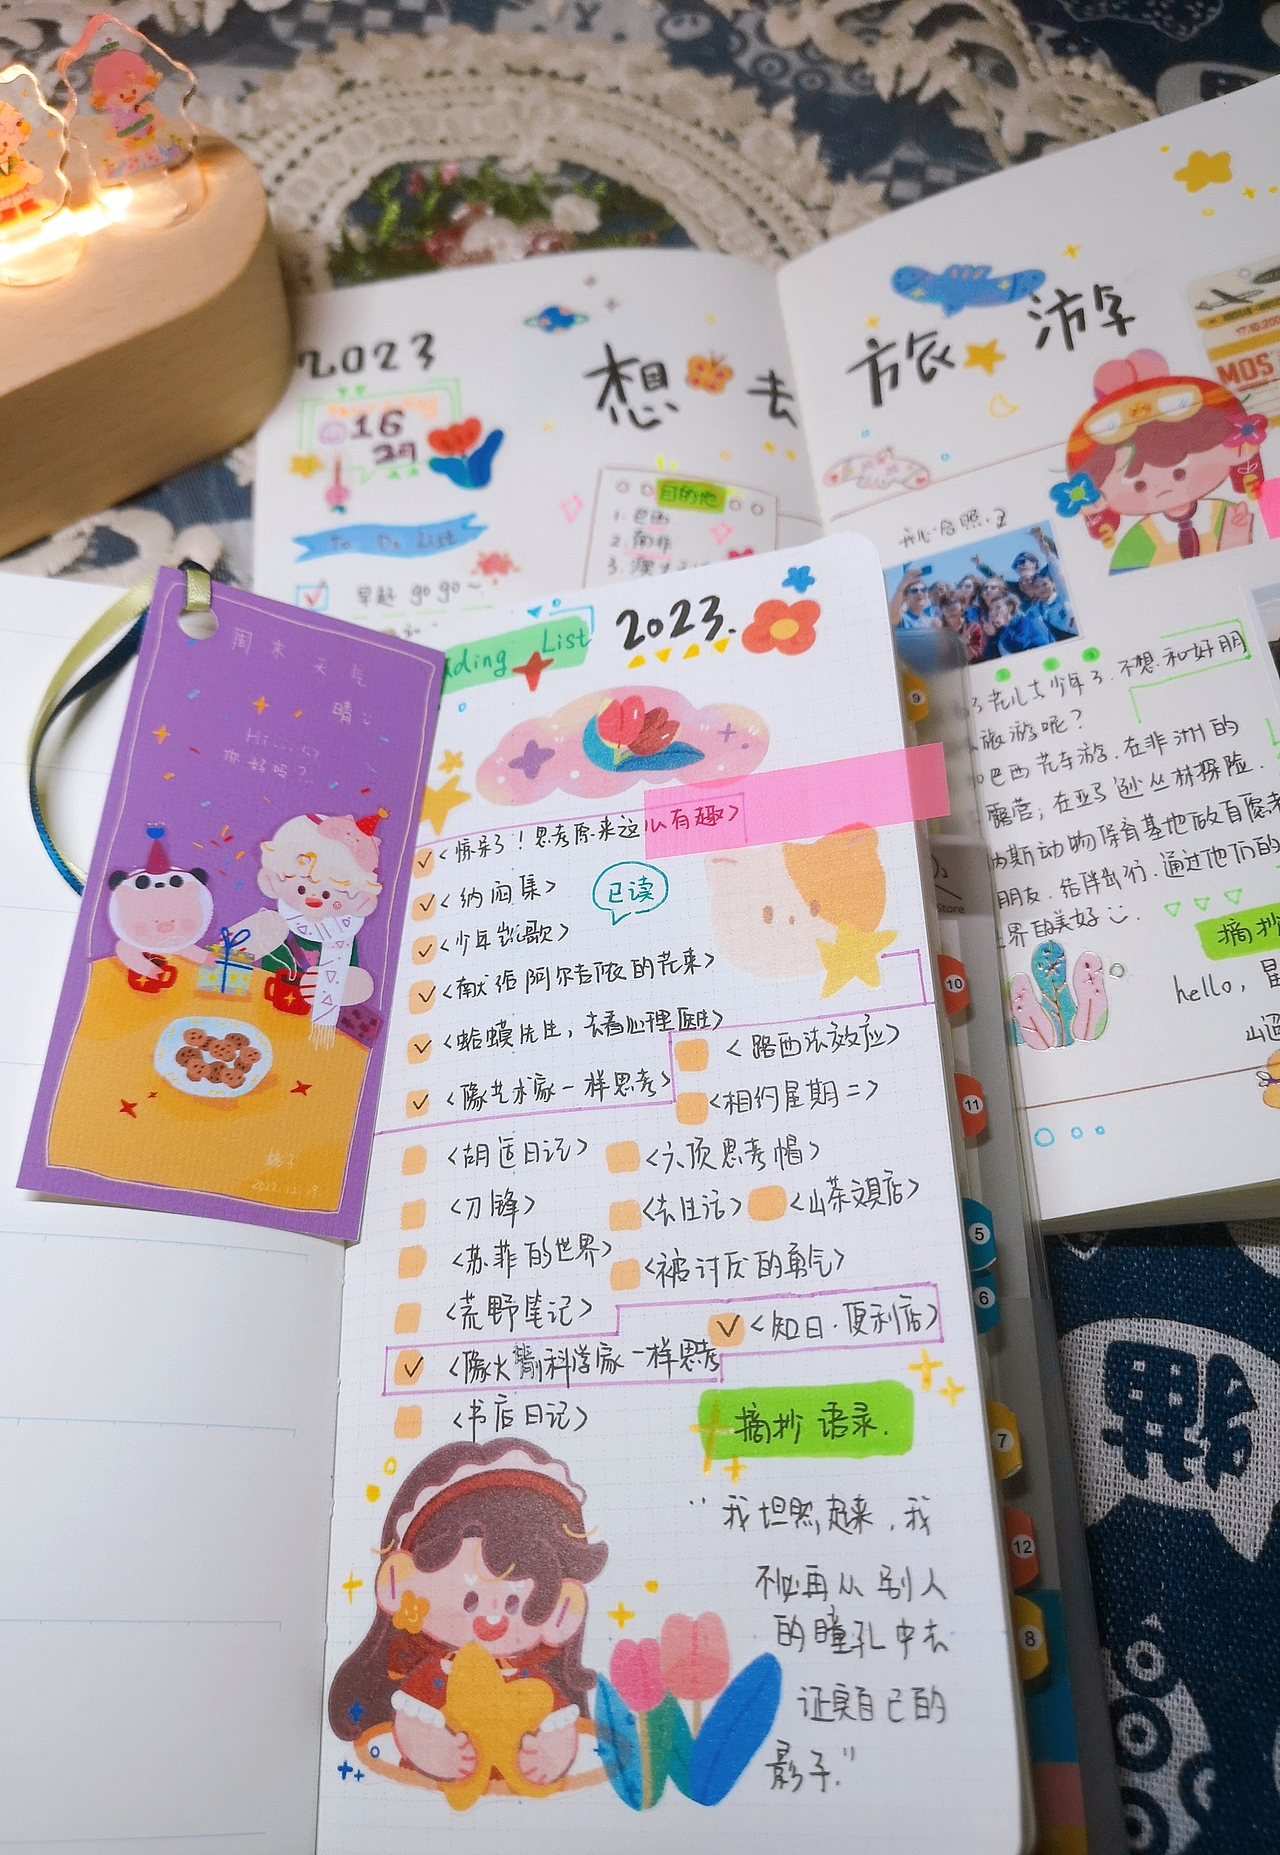 2023
想去
旅游
16
29
To Do List
早起 gogo~
目的地
1. 巴西
2. 南非
开心合照
不想和好朋
旅游呢?
巴西花车游.在非洲的
露营;在亚马逊丛林探险.
动物保育基地做自愿者
朋友.结伴出行.通过他们的
界的美好
摘抄
hello,
17.10.200
MOS
周末天气
晴
Hi....
你好吗?
桃子
2022.12.19.
ding List 2023.
<惊呆了!思考原来这么有趣>
<纳闷集>
已读
<少年凯歌>
<献给阿尔吉侬的花束>
<蛤蟆先生,去看心理医生>
<路西法效应>
<像艺术家一样思考>
<相约星期二>
<胡适日记> <六顶思考帽>
<刀锋> <去生活> <山茶文具店>
<苏菲的世界> <被讨厌的勇气>
<荒野笔记>
<知日·便利店>
<像火箭科学家一样思考
<书店日记>
摘抄语录.
"我坦然起来,我
不必再从别人
的瞳孔中去
证实自己的
影子."
9
10
11
5
6
7
12
8